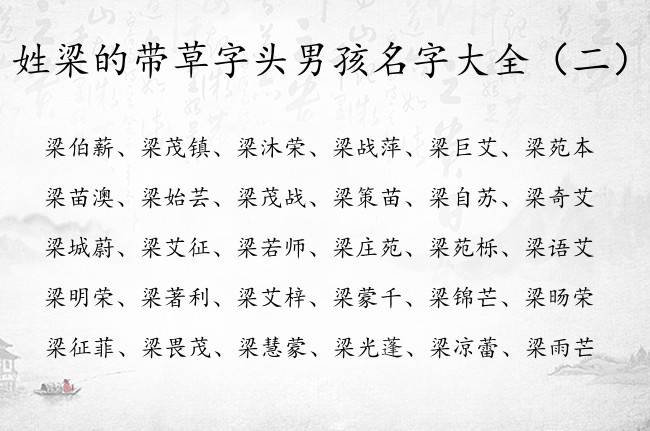 姓梁的带草字头男孩名字大全（二）
梁伯薪、梁茂镇、梁沐荣、梁战萍、梁巨艾、梁苑本
梁苗澳、梁始芸、梁茂战、梁策苗、梁自苏、梁奇艾
梁城蔚、梁艾征、梁若师、梁庄苑、梁苑栎、梁语艾
梁明荣、梁著利、梁艾梓、梁蒙千、梁锦芒、梁旸荣
梁征菲、梁畏茂、梁慧蒙、梁光蓬、梁凉蕾、梁雨芒